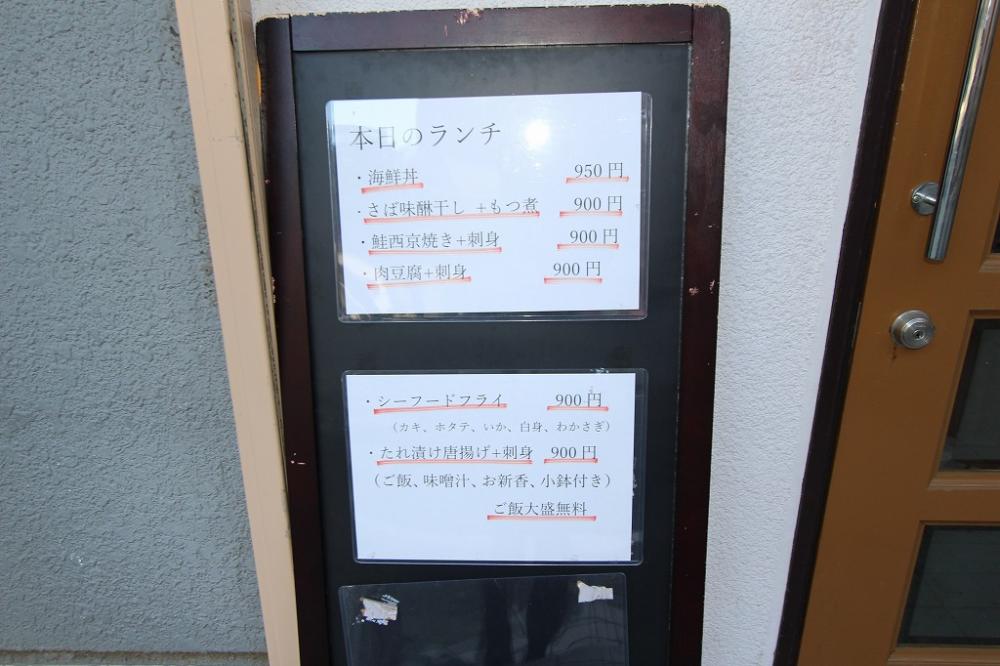 本日のランチ
・海鮮丼 950円
・さば味醂干し +もつ煮 900円
・鮭西京焼き+刺身 900円
・肉豆腐+刺身 900円
・シーフードフライ 900円
(カキ、ホタテ、いか、白身、わかさぎ)
・たれ漬け唐揚げ+刺身 900円
(ご飯、味噌汁、お新香、小鉢付き)
ご飯大盛無料